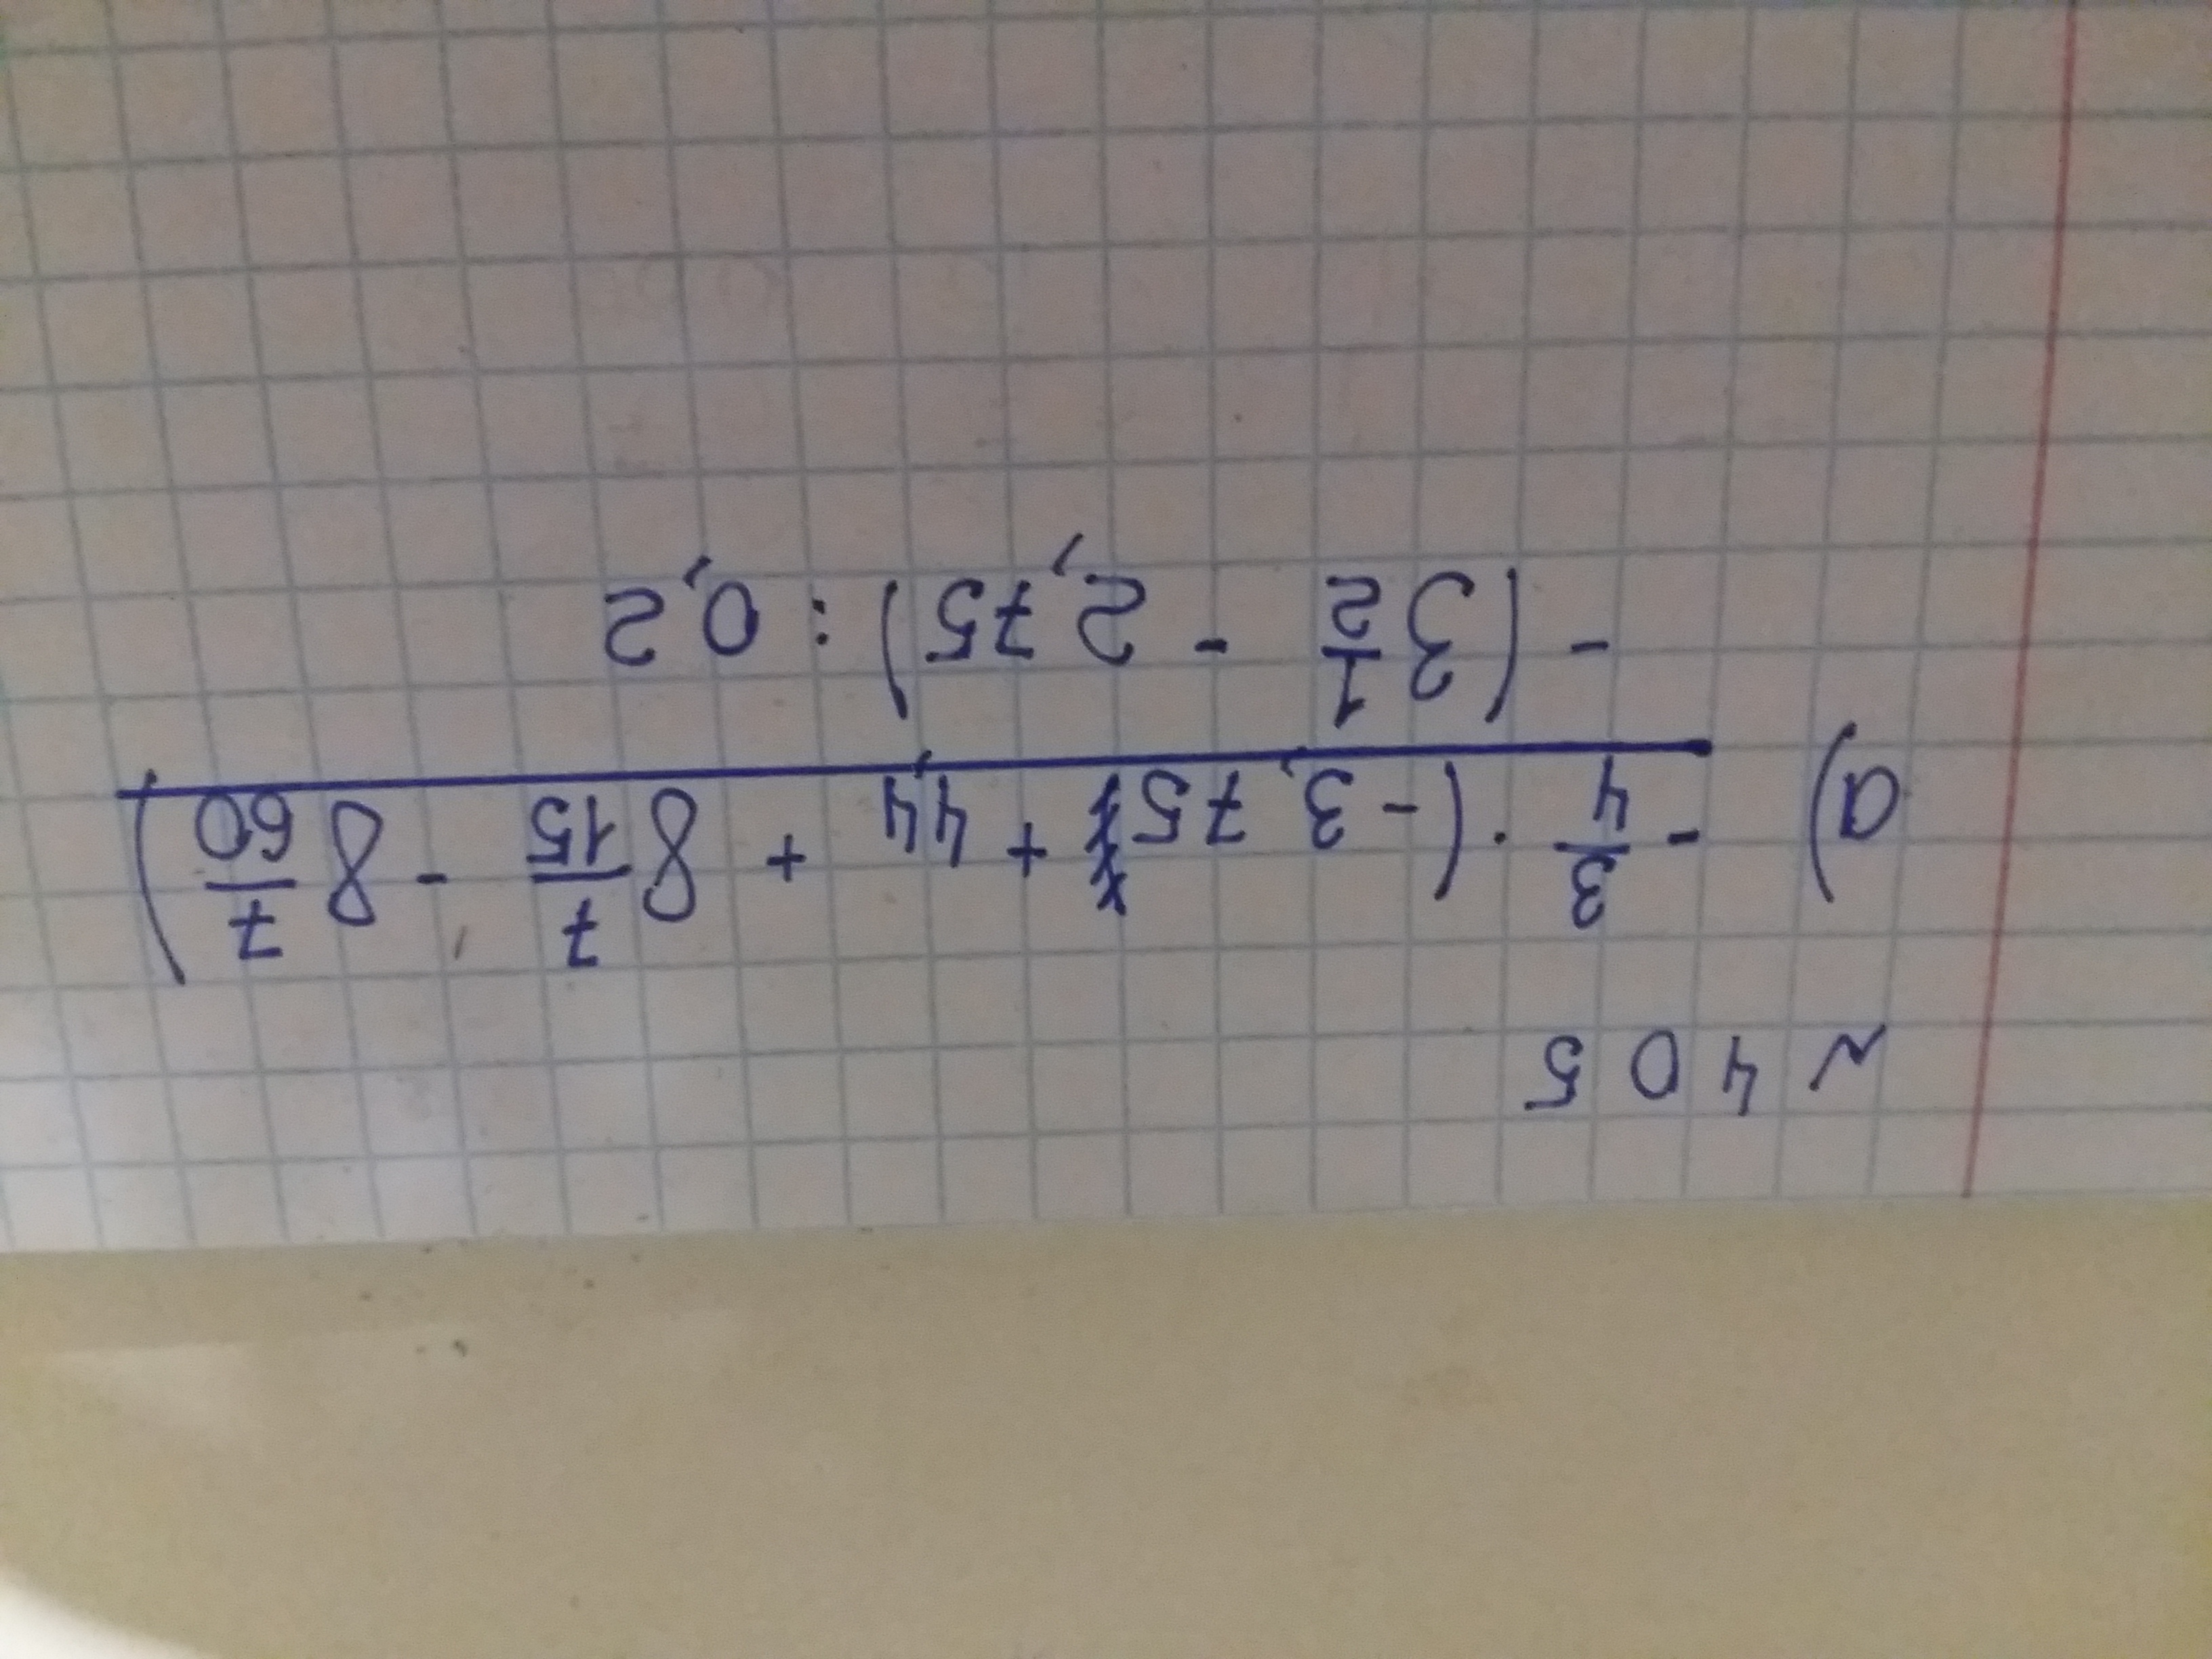 ~ 405
а) -3/4 · (-3,75 + 4,4 + 8 7/15 - 8 7/60)
-(3 1/2 - 2,75) : 0,2